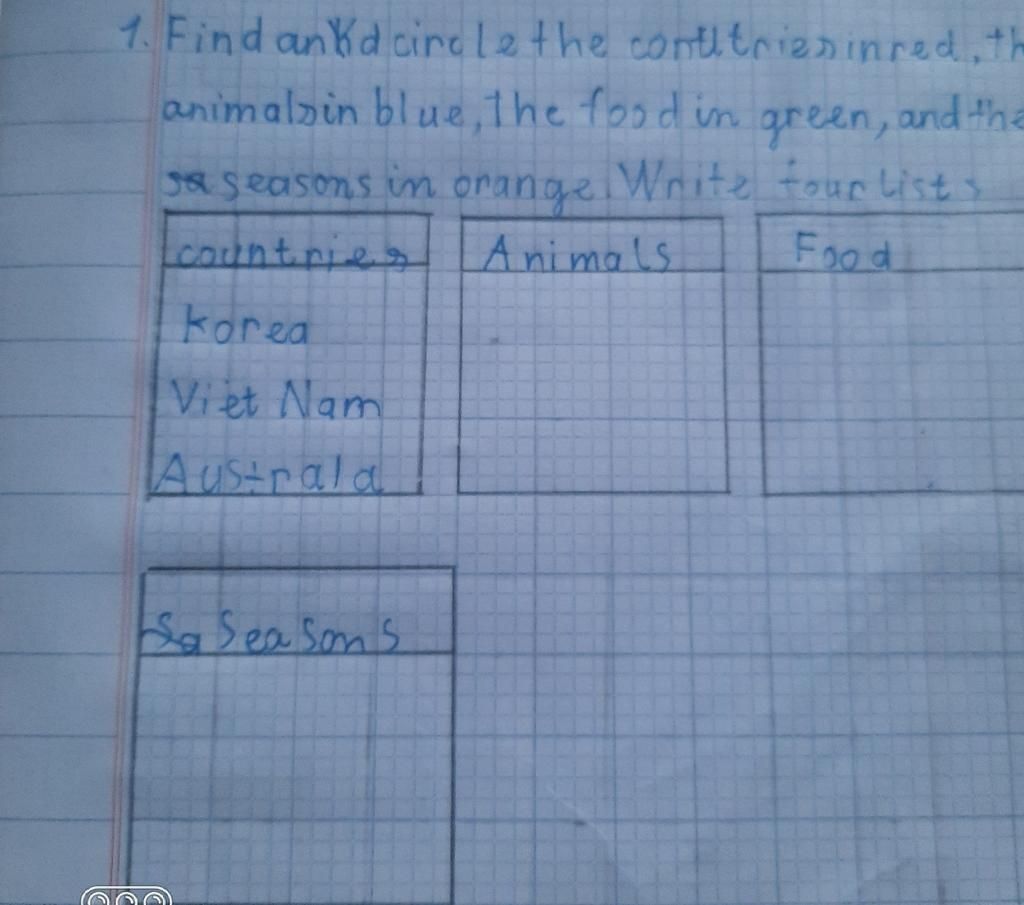 1. Find and circle the contries in red, th
animals in blue, the food in green, and the
seasons in orange. Write four lists
countries Animals Food
Korea
Viet Nam
Australa
Sa Seasons